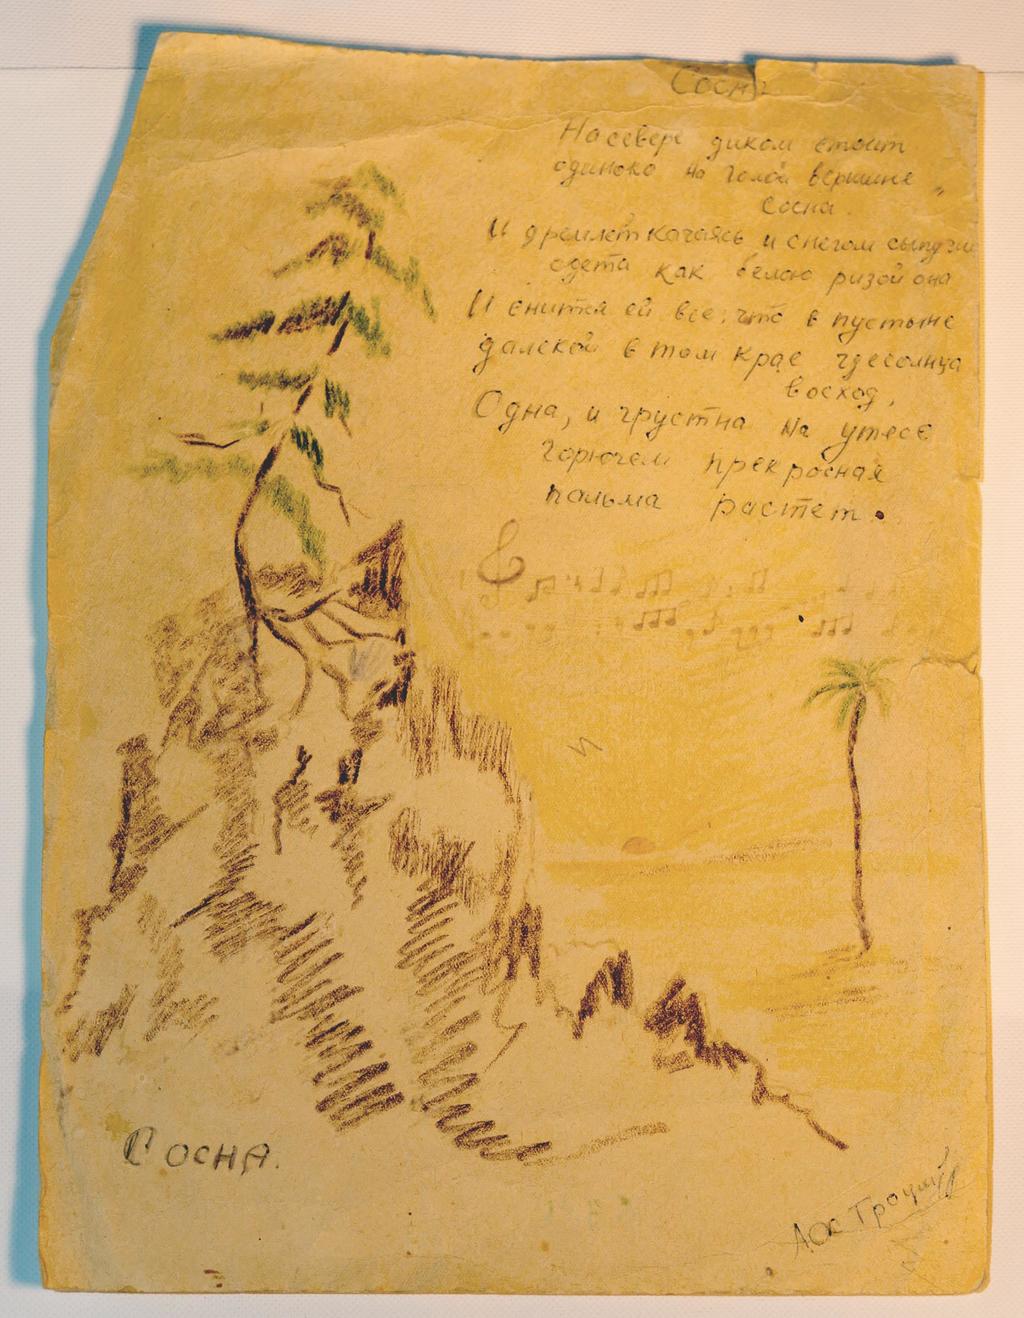 Сосна
На севере диком стоит
одиноко на голой вершине
сосна.
И дремлет качаясь и снегом сыпучим
одета как белою ризой она
И снится ей все: что в пустыне
далекой в том крае где солнца
восход,
Одна, и грустна на утесе
горючем прекрасная
пальма растет.
Сосна.